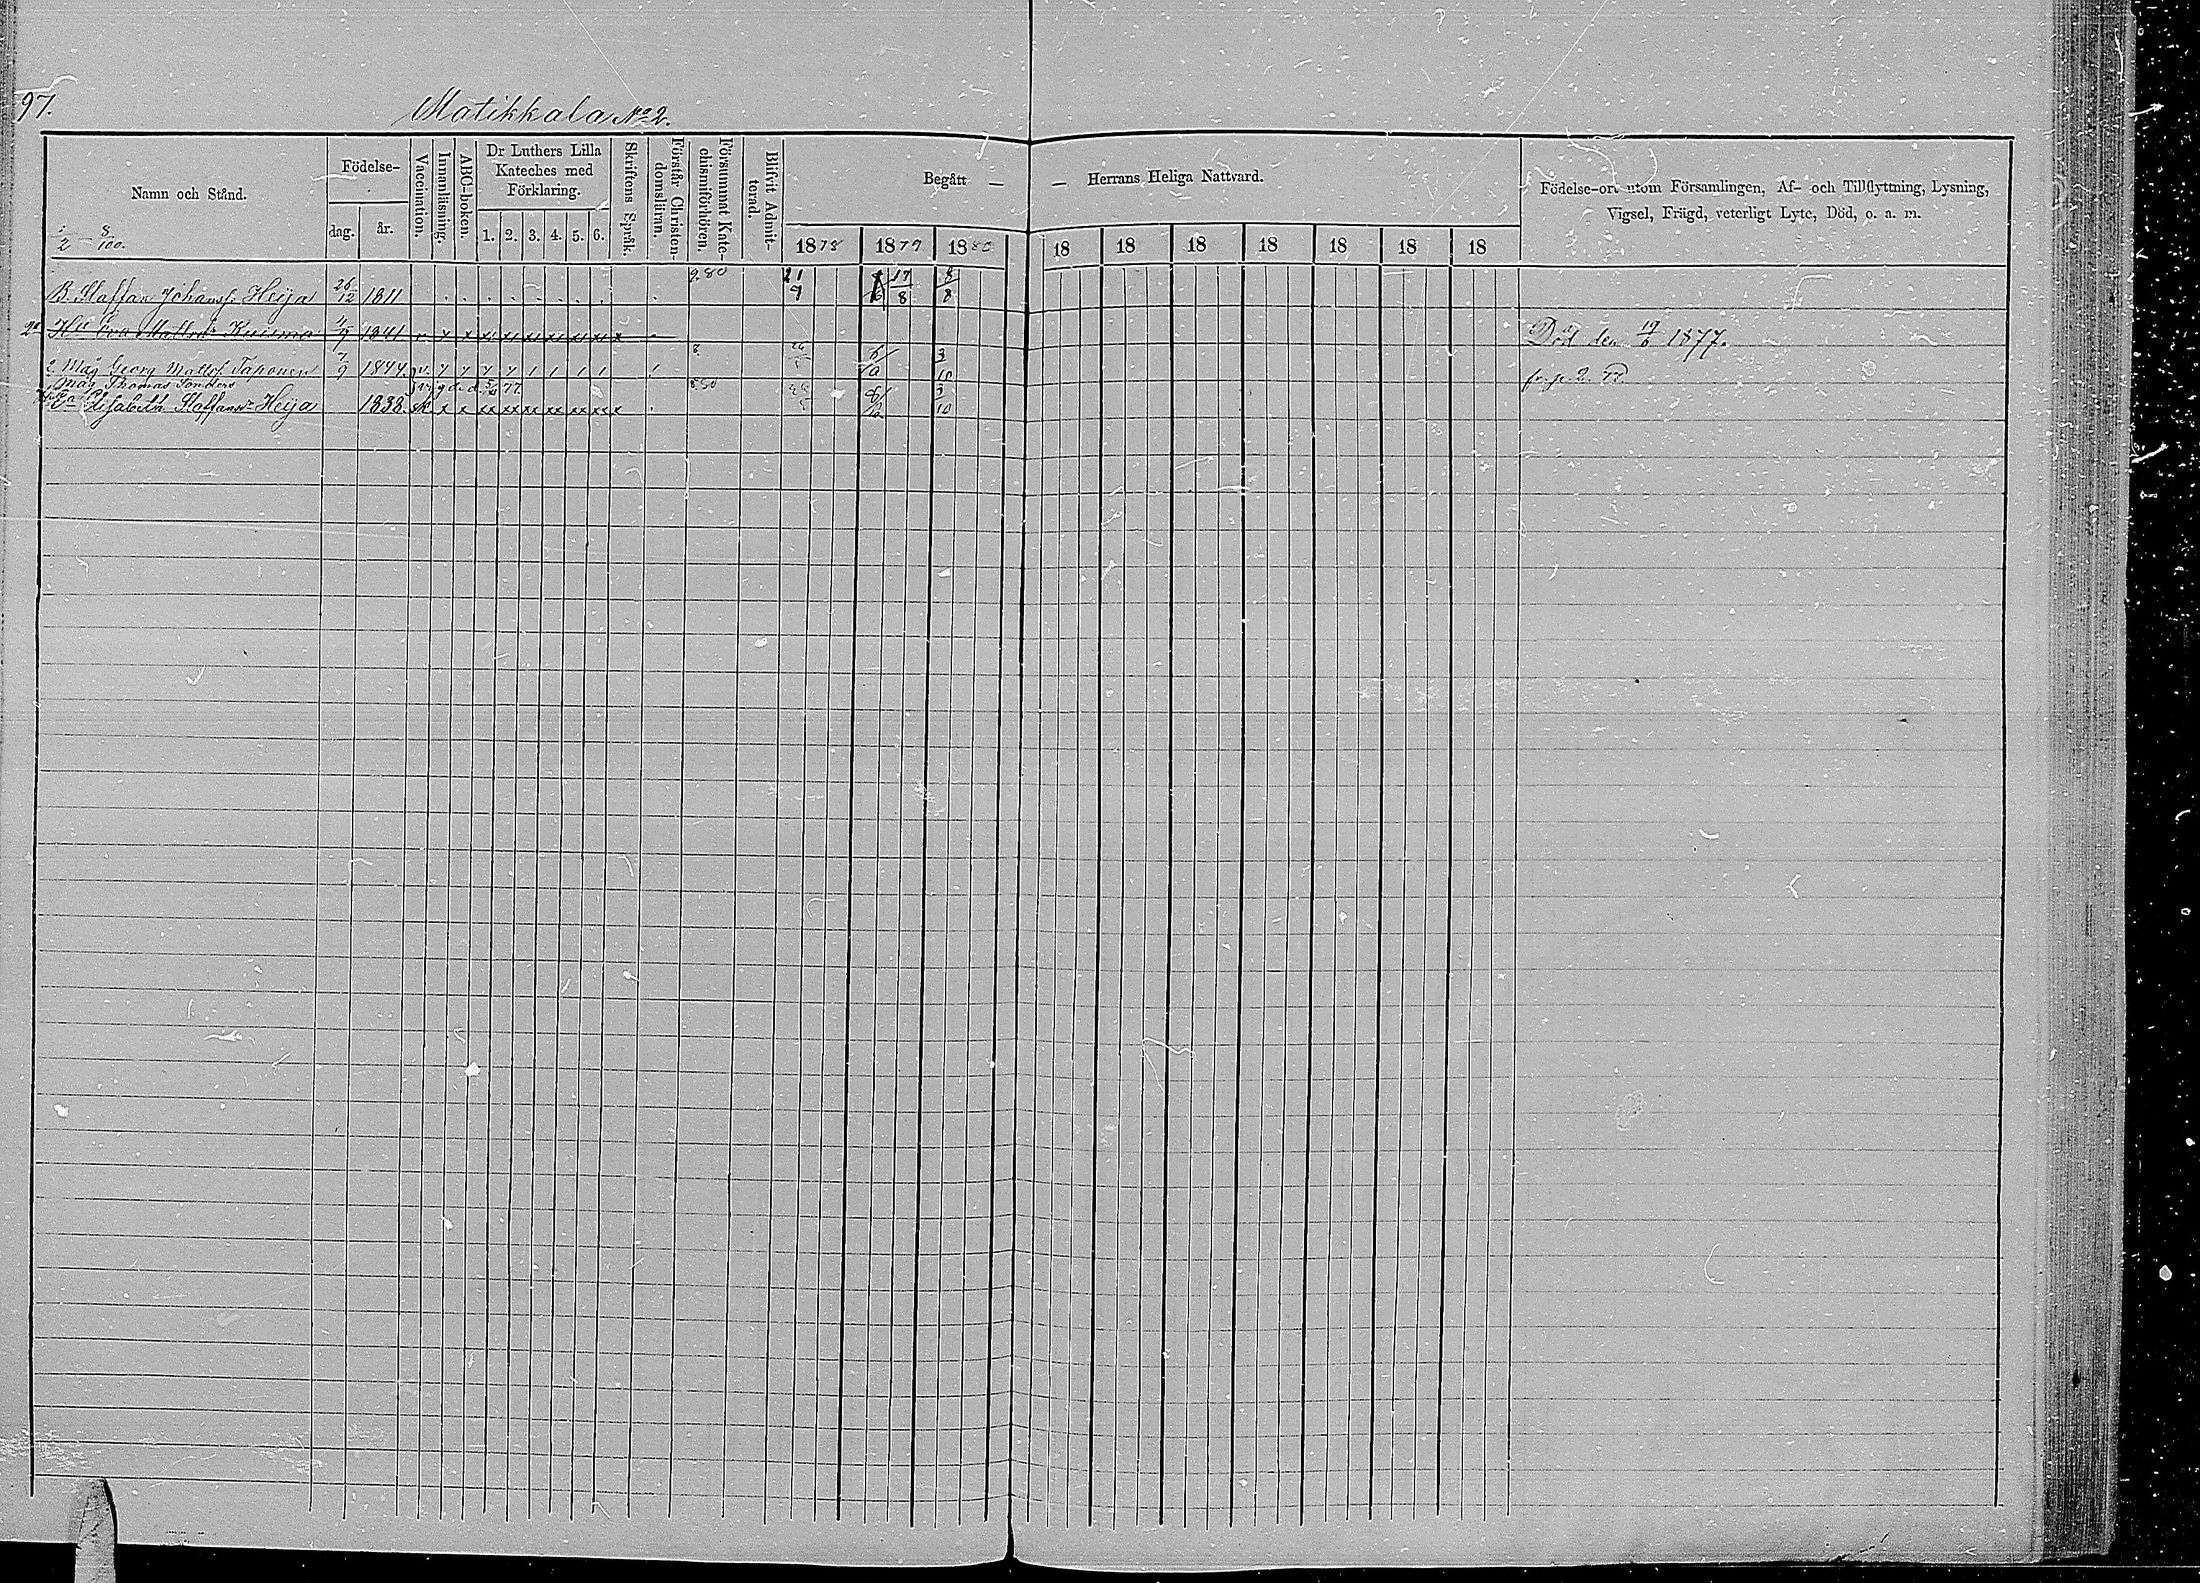 97.
Matikkala No 2.
Namn och Stånd.
Födelse-
dag.
år.
Vaccination.
Innanläsning.
ABC-boken.
Dr Luthers Lilla
Kateches med
Förklaring.
1. 2. 3. 4. 5. 6.
Skriftens Språk.
Förstår Christen-
domsläran.
Försummat Kate-
chismiförhören.
Blifvit Admit-
terad.
Begått — — Herrans Heliga Nattvard.
1878 1879 1880 18 18 18 18 18 18 18
Födelse-ort utom Församlingen, Af- och Tillflyttning, Lysning,
Vigsel, Frägd, veterligt Lyte, Död, o. a. m.
8/100.
B. Staffan Johansf. Heija 26/12 1811 21/9 17/8 8/8
Hu Eva Mattsdr Kuisma 1/9 1841 Död den 19/6 1877.
2 Måg Georg Mattsf. Taponen 7/9 1844. v. 8/10 3/10
Måg Thomas
Elisabeth Staffansdr Heija 1838. 8/10 3/10